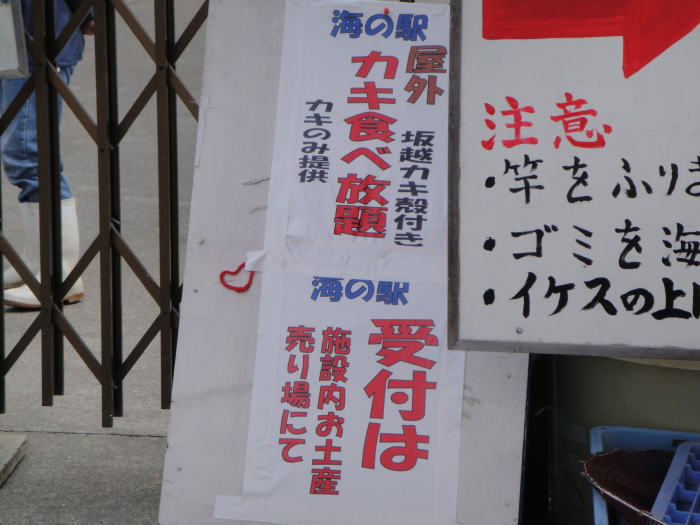 海の駅
屋外
カキ食べ放題
坂越カキ殻付き
カキのみ提供
海の駅
受付は
施設内お土産
売り場にて
注意
・竿をふりま
・ゴミを海
・イケスの上に